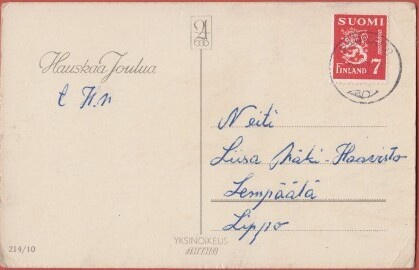 SUOMI
FINLAND 7
Hauskaa Joulua
Neiti
Liisa Mäki-Haavisto
Lempäälä
Lippo
YKSINOIKEUS
214/10